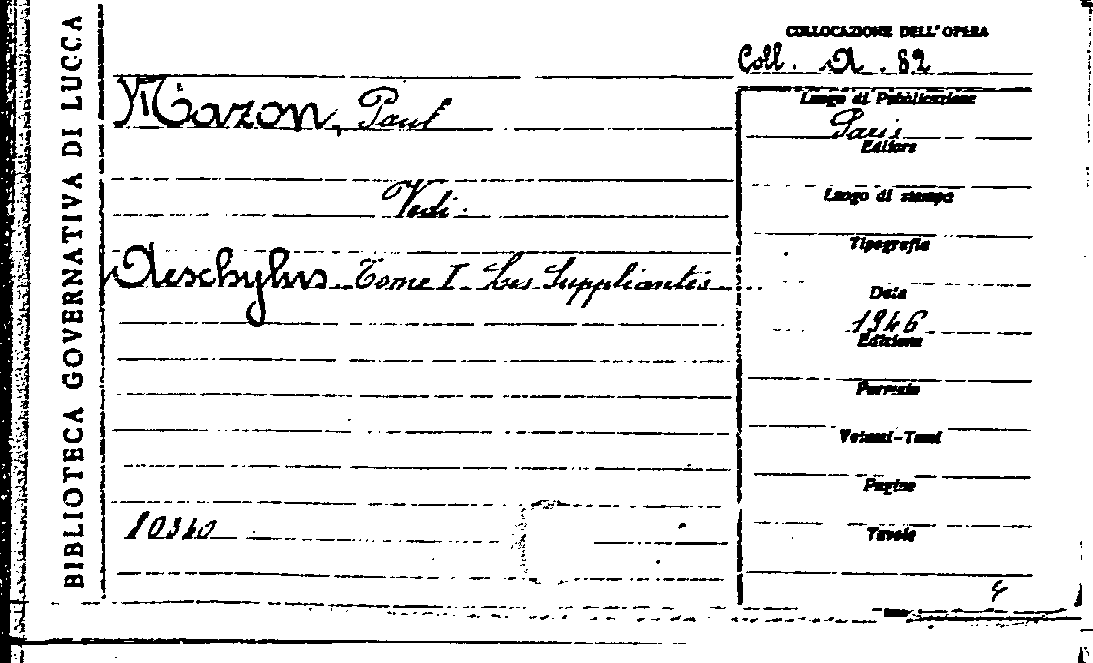 BIBLIOTECA GOVERNATIVA DI LUCCA
COLLOCAZIONE DELL'OPERA
Coll. A. 82
Mazon, Paul
Vedi.
Aeschylus Tome I Les Suppliantes
10340
Luogo di Pubblicazione
Paris
Editore
Luogo di stampa
Tipografia
Data
1946
Edizione
Formato
Volumi-Tomi
Pagine
Tavole